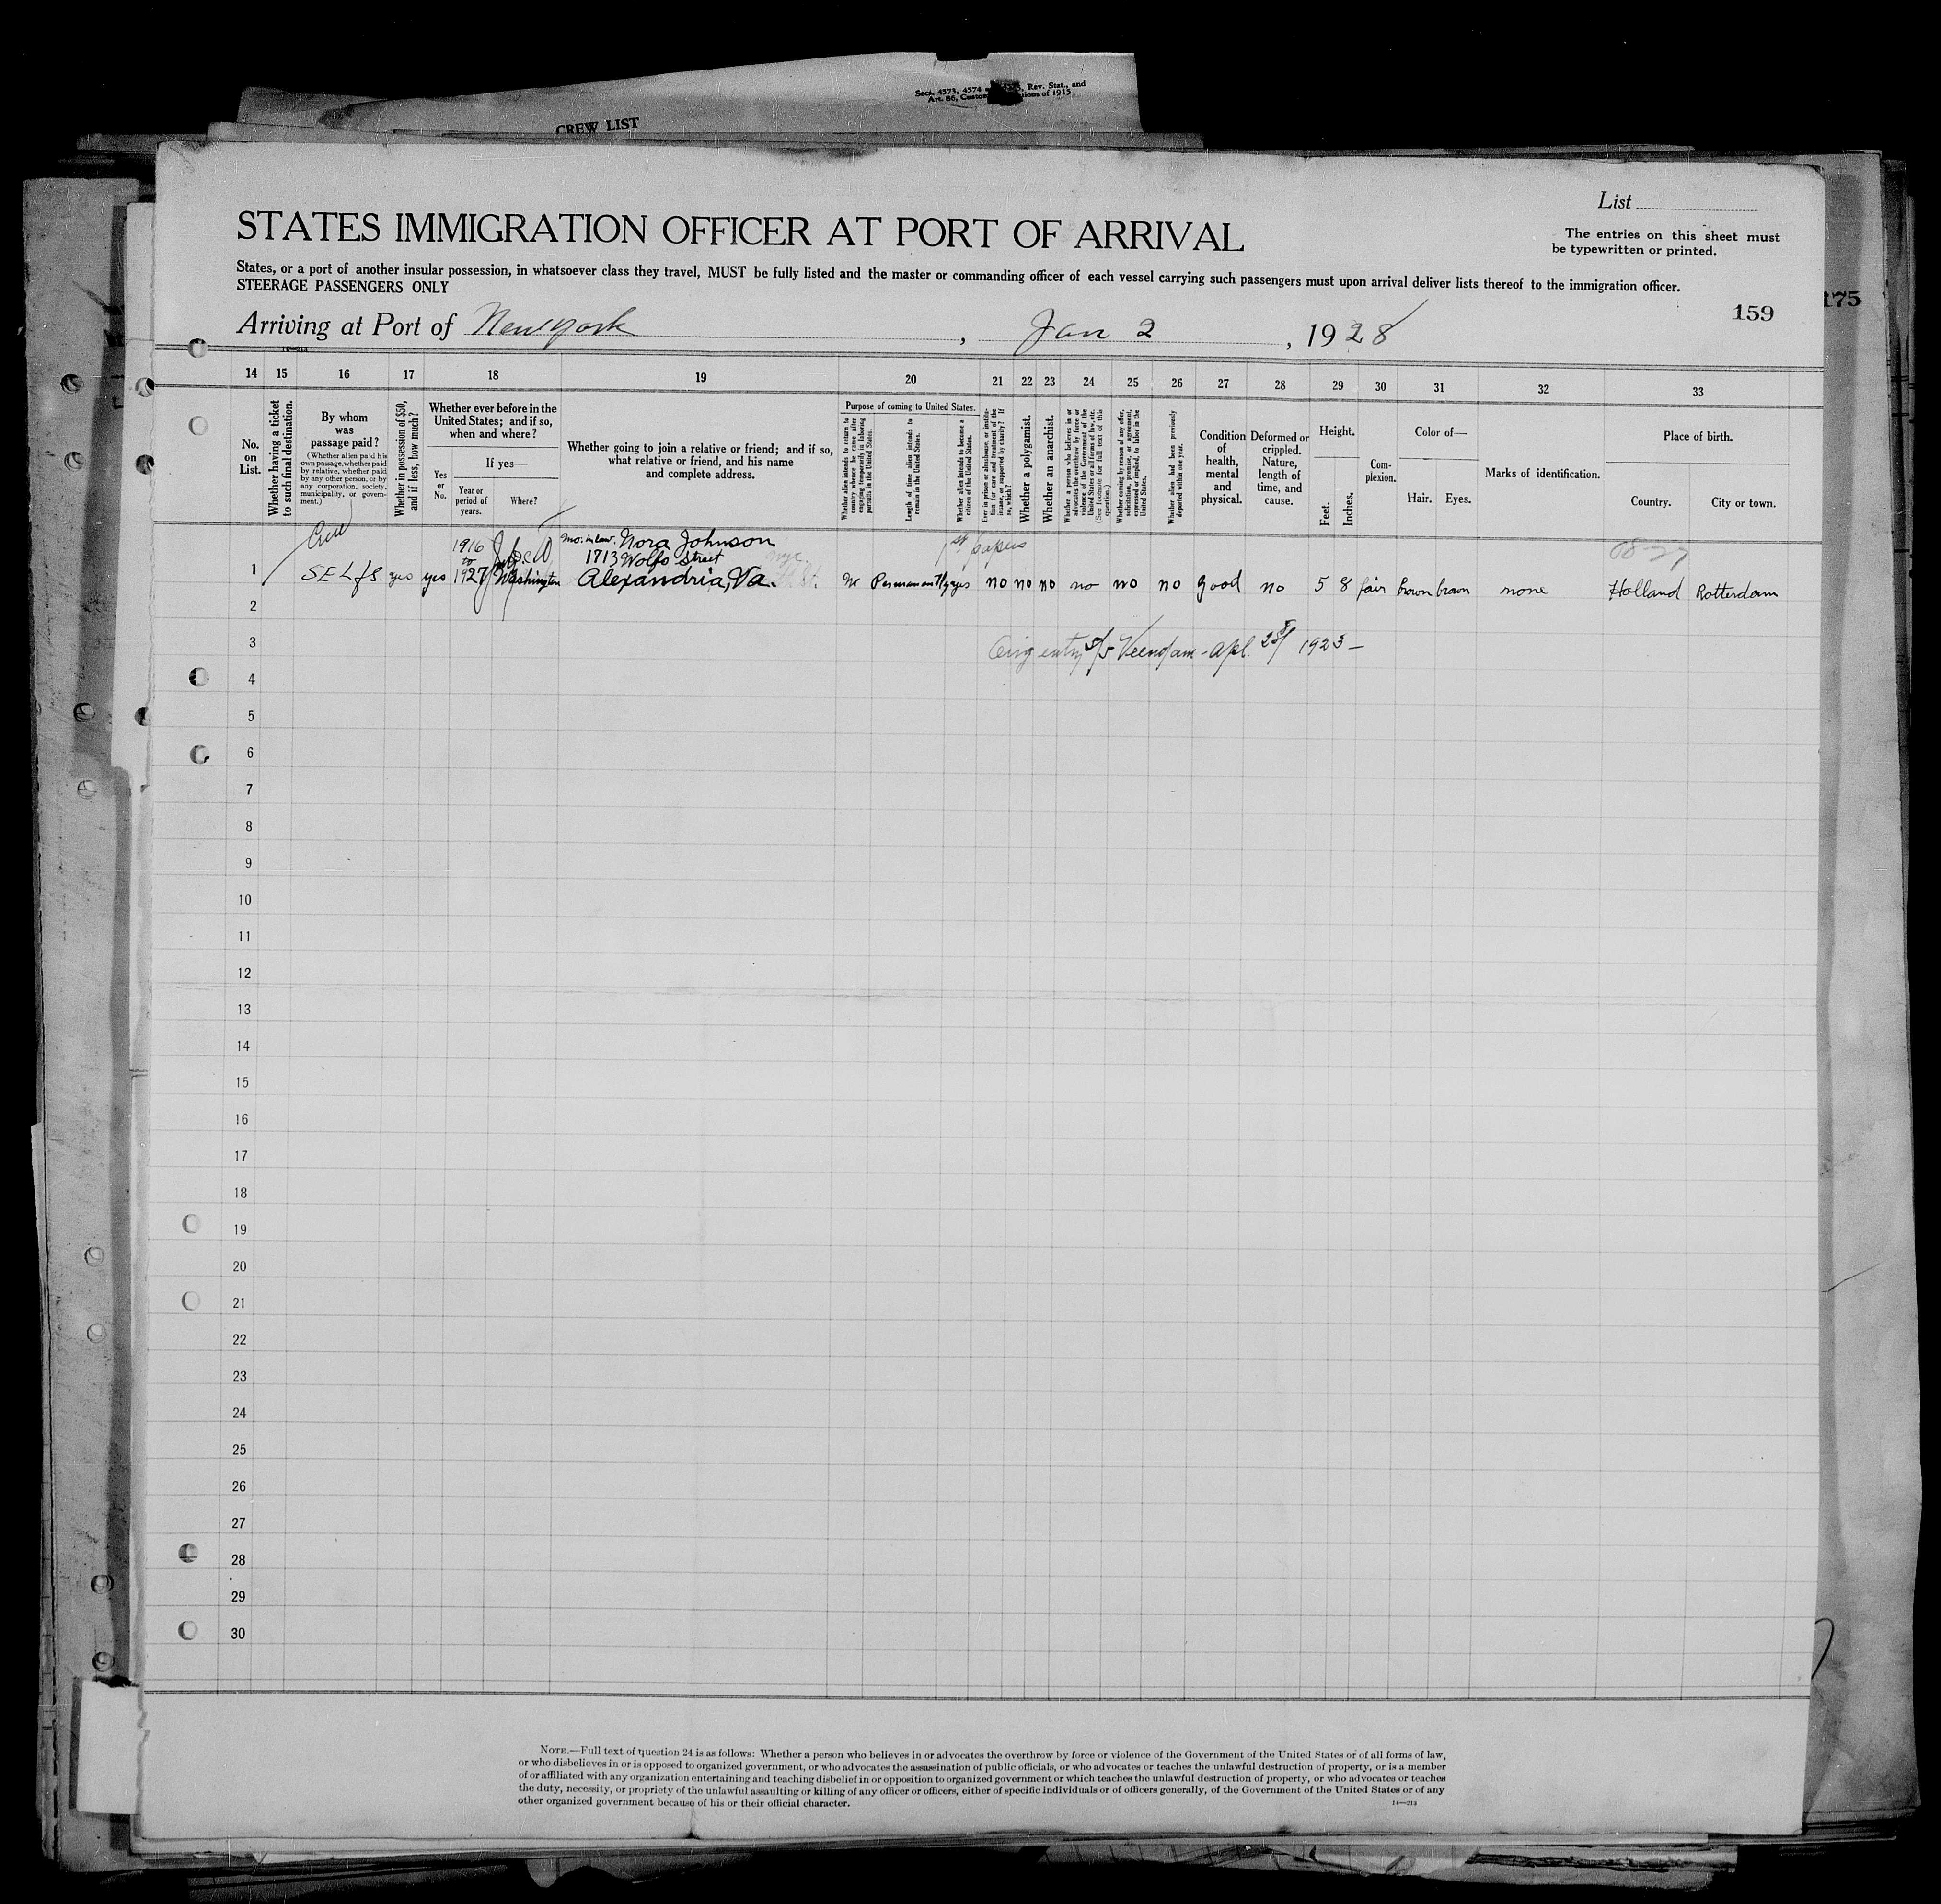 Secs. 4573, 4574 Rev. Stat., and
Art. 86, of 1915
CREW LIST
List
STATES IMMIGRATION OFFICER AT PORT OF ARRIVAL
The entries on this sheet must
be typewritten or printed.
States, or a port of another insular possession, in whatsoever class they travel, MUST be fully listed and the master or commanding officer of each vessel carrying such passengers must upon arrival deliver lists thereof to the immigration officer.
STEERAGE PASSENGERS ONLY
175
159
Arriving at Port of New York, Jan 2, 1928
14 15 16 17 18 19 20 21 22 23 24 25 26 27 28 29 30 31 32 33
No. on List.
Whether having a ticket to such final destination.
By whom was passage paid?
(Whether alien paid his own passage, whether paid by relative, whether paid by any other person, or by any corporation, society, municipality, or government.)
Whether in possession of $50, and if less, how much?
Whether ever before in the United States; and if so, when and where?
Yes or No.
If yes—
Year or period of years.
Where?
Whether going to join a relative or friend; and if so, what relative or friend, and his name and complete address.
Purpose of coming to United States.
Whether alien intends to return to country whence he came after engaging temporarily in laboring pursuits in the United States.
Length of time alien intends to remain in the United States.
Whether alien intends to become a citizen of the United States.
Ever in prison or almshouse, or institution for care and treatment of the insane, or supported by charity? If so, which?
Whether a polygamist.
Whether an anarchist.
Whether a person who believes in or advocates the overthrow by force or violence of the Government of the United States or all forms of law, etc. (See footnote for full text of this question.)
Whether coming by reason of any offer, solicitation, promise, or agreement, expressed or implied, to labor in the United States.
Whether alien had been previously deported within one year.
Condition of health, mental and physical.
Deformed or crippled. Nature, length of time, and cause.
Height.
Feet.
Inches.
Complexion.
Color of—
Hair. Eyes.
Marks of identification.
Place of birth.
Country. City or town.
1916 to 1927
mo. in law. Nora Johnson
1713 Wolfe Street
1st papers
1 SELfS. yes yes Washington Alexandria, Va. No Permanently yes no no no no no no good no 5 8 fair brown brown none Holland Rotterdam
2
3 Orig entry S/S Veendam - Apl. 28/ 1923 —
4
5
6
7
8
9
10
11
12
13
14
15
16
17
18
19
20
21
22
23
24
25
26
27
28
29
30
NOTE.—Full text of question 24 is as follows: Whether a person who believes in or advocates the overthrow by force or violence of the Government of the United States or of all forms of law,
or who disbelieves in or is opposed to organized government, or who advocates the assassination of public officials, or who advocates or teaches the unlawful destruction of property, or is a member
of or affiliated with any organization entertaining and teaching disbelief in or opposition to organized government or which teaches the unlawful destruction of property, or who advocates or teaches
the duty, necessity, or propriety of the unlawful assaulting or killing of any officer or officers, either of specific individuals or of officers generally, of the Government of the United States or of any
other organized government because of his or their official character.
14—213